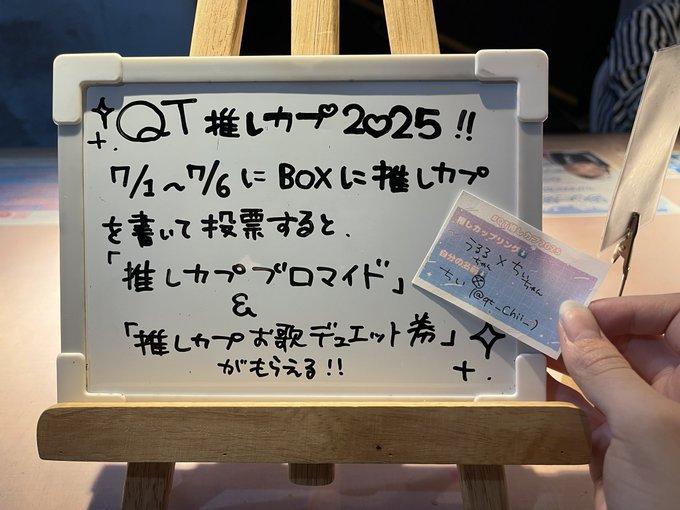 QT 推しカプ 2025 !!
7/1〜7/6 に BOXに推しカプ
を書いて投票すると、
「推しカプブロマイド」
&
「推しカプお歌デュエット券」
がもらえる!!
推しカップリング
うるる × ちぃ
ちゃん ちゃん
自分の名前
ちぃ
(@qt_Chii_)